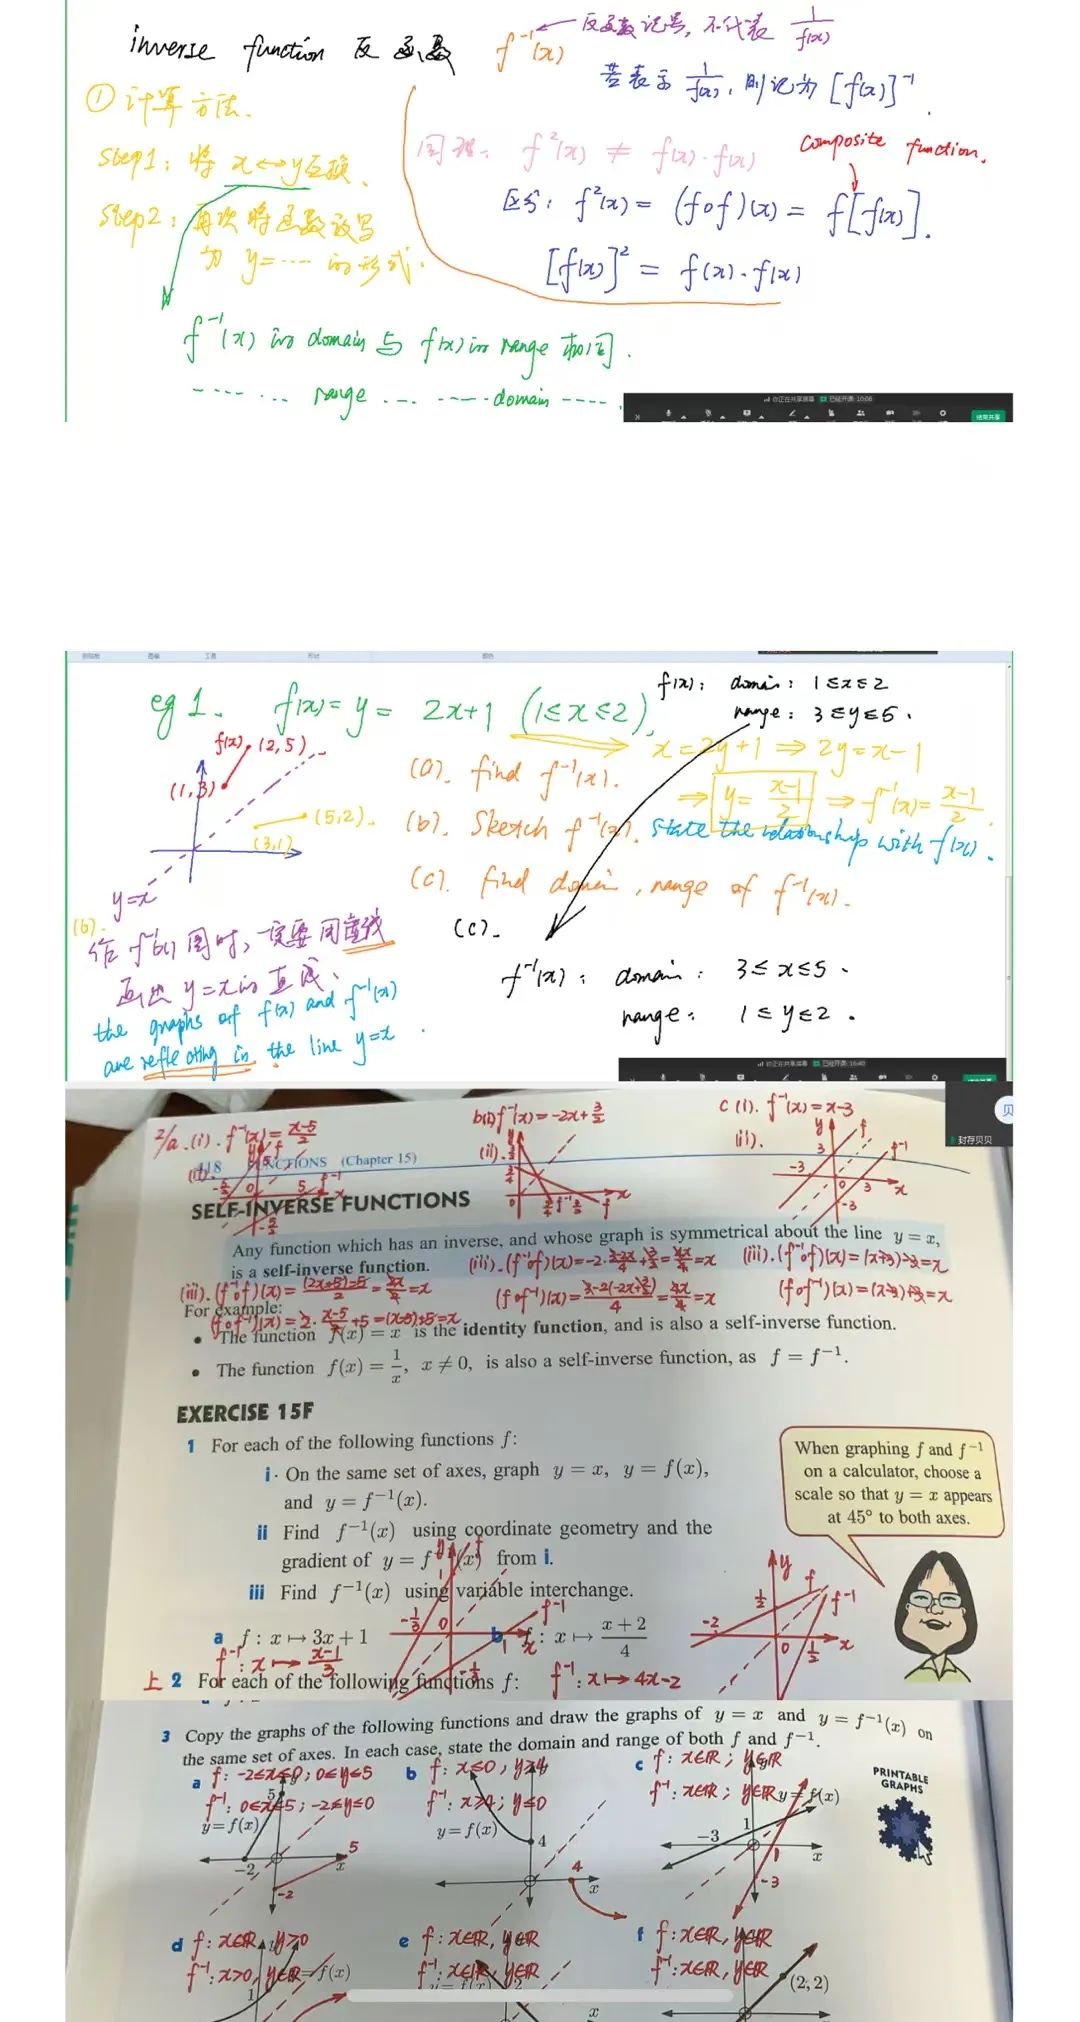 inverse function 反函数 f⁻¹(x) ← 反函数记号, 不代表 1/f(x)
若表示 1/f(x), 则记为 [f(x)]⁻¹.
① 计算方法.
Step1: 将 x↔y互换.
Step2: 再次将函数改写
为 y=…… 的形式.
同理: f²(x) ≠ f(x)·f(x)
composite function.
区分: f²(x) = (f∘f)(x) = f[f(x)].
[f(x)]² = f(x)·f(x)
f⁻¹(x) 的 domain 与 f(x) 的 range 相同.
---- ... range ... ---- domain ----.
你正在共享屏幕 已经开课: 10:06
结束共享
eg 1. f(x)= y = 2x+1 (1≤x≤2).
f(x): domain: 1≤x≤2
range: 3≤y≤5.
x=2y+1 ⇒ 2y=x-1
⇒ y= (x-1)/2 ⇒ f⁻¹(x)= (x-1)/2.
(a). find f⁻¹(x).
(b). Sketch f⁻¹(x). State the relationship with f(x).
(c). find domain, range of f⁻¹(x).
f(x). (2,5).
(1,3)
(5,2).
(3,1)
y=x
(b).
作 f⁻¹(x) 图时, 一定要用虚线
画出 y=x的直线.
the graphs of f(x) and f⁻¹(x)
are reflecting in the line y=x.
(c).
f⁻¹(x): domain: 3≤x≤5.
range: 1≤y≤2.
你正在共享屏幕 已经开课: 16:40
封存贝贝
2/a.(i). f⁻¹(x)= (x-5)/2
b(i) f⁻¹(x)=-2x+3/2
c (i). f⁻¹(x)=x-3
(ii).
(ii).
(ii).
418 FUNCTIONS (Chapter 15)
SELF-INVERSE FUNCTIONS
Any function which has an inverse, and whose graph is symmetrical about the line y = x,
is a self-inverse function.
(iii). (f⁻¹∘f)(x)= ((2x+5)-5)/2 = 2x/2 =x
(iii). (f⁻¹∘f)(x)=-2· (3-2x)/4 + 3/2 = 4x/4 =x
(iii). (f⁻¹∘f)(x)=(x+3)-3=x
(f∘f⁻¹)(x)= 2· (x-5)/2 +5 =(x-5)+5=x
(f∘f⁻¹)(x)= (3-2(-2x+3/2))/4 = 4x/4 =x
(f∘f⁻¹)(x)=(x-3)+3=x
For example:
• The function f(x) = x is the identity function, and is also a self-inverse function.
• The function f(x) = 1/x, x ≠ 0, is also a self-inverse function, as f = f⁻¹.
EXERCISE 15F
1 For each of the following functions f:
i On the same set of axes, graph y = x, y = f(x),
and y = f⁻¹(x).
ii Find f⁻¹(x) using coordinate geometry and the
gradient of y = f⁻¹(x) from i.
iii Find f⁻¹(x) using variable interchange.
When graphing f and f⁻¹
on a calculator, choose a
scale so that y = x appears
at 45° to both axes.
a f : x ↦ 3x + 1
b f : x ↦ (x + 2)/4
f⁻¹: x ↦ (x-1)/3
上 2 For each of the following functions f:
f⁻¹: x ↦ 4x-2
3 Copy the graphs of the following functions and draw the graphs of y = x and y = f⁻¹(x) on
the same set of axes. In each case, state the domain and range of both f and f⁻¹.
a f: -2≤x≤0; 0≤y≤5
b f: x≤0, y≥4
c f: x∈ℝ; y∈ℝ
f⁻¹: 0≤x≤5; -2≤y≤0
f⁻¹: x≥4; y≤0
f⁻¹: x∈ℝ; y∈ℝ
y = f(x)
y = f(x)
y = f(x)
PRINTABLE
GRAPHS
d f: x∈ℝ, y>0
e f: x∈ℝ, y∈ℝ
f f: x∈ℝ, y∈ℝ
f⁻¹: x>0, y∈ℝ
f⁻¹: x∈ℝ, y∈ℝ
f⁻¹: x∈ℝ, y∈ℝ
(2, 2)